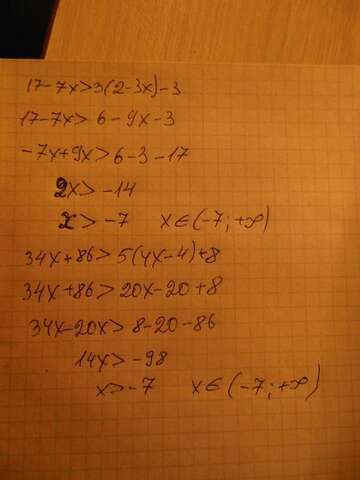 17-7x>3(2-3x)-3
17-7x>6-9x-3
-7x+9x>6-3-17
2x>-14
x>-7 x∈(-7;+∞)
34x+86>5(4x-4)+8
34x+86>20x-20+8
34x-20x>8-20-86
14x>-98
x>-7 x∈(-7;+∞)